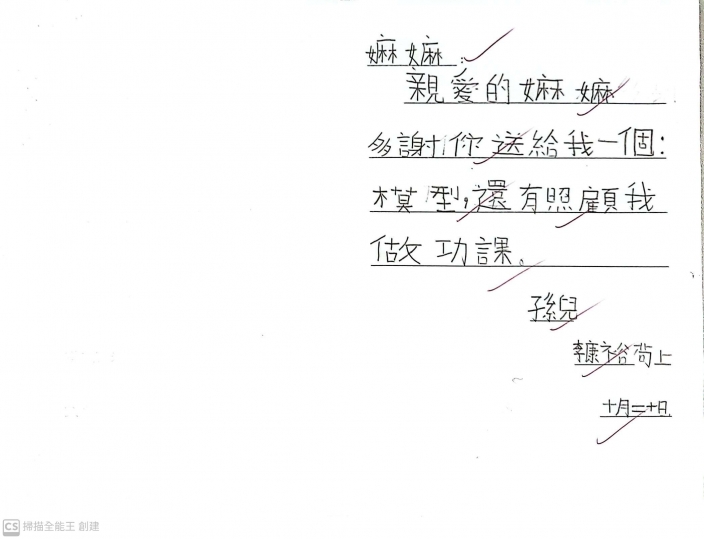 嫲嫲：
親愛的嫲嫲
多謝你送給我一個：
模型，還有照顧我
做功課。
孫兒
李康裕尚上
十月二十日
CS 掃描全能王 創建